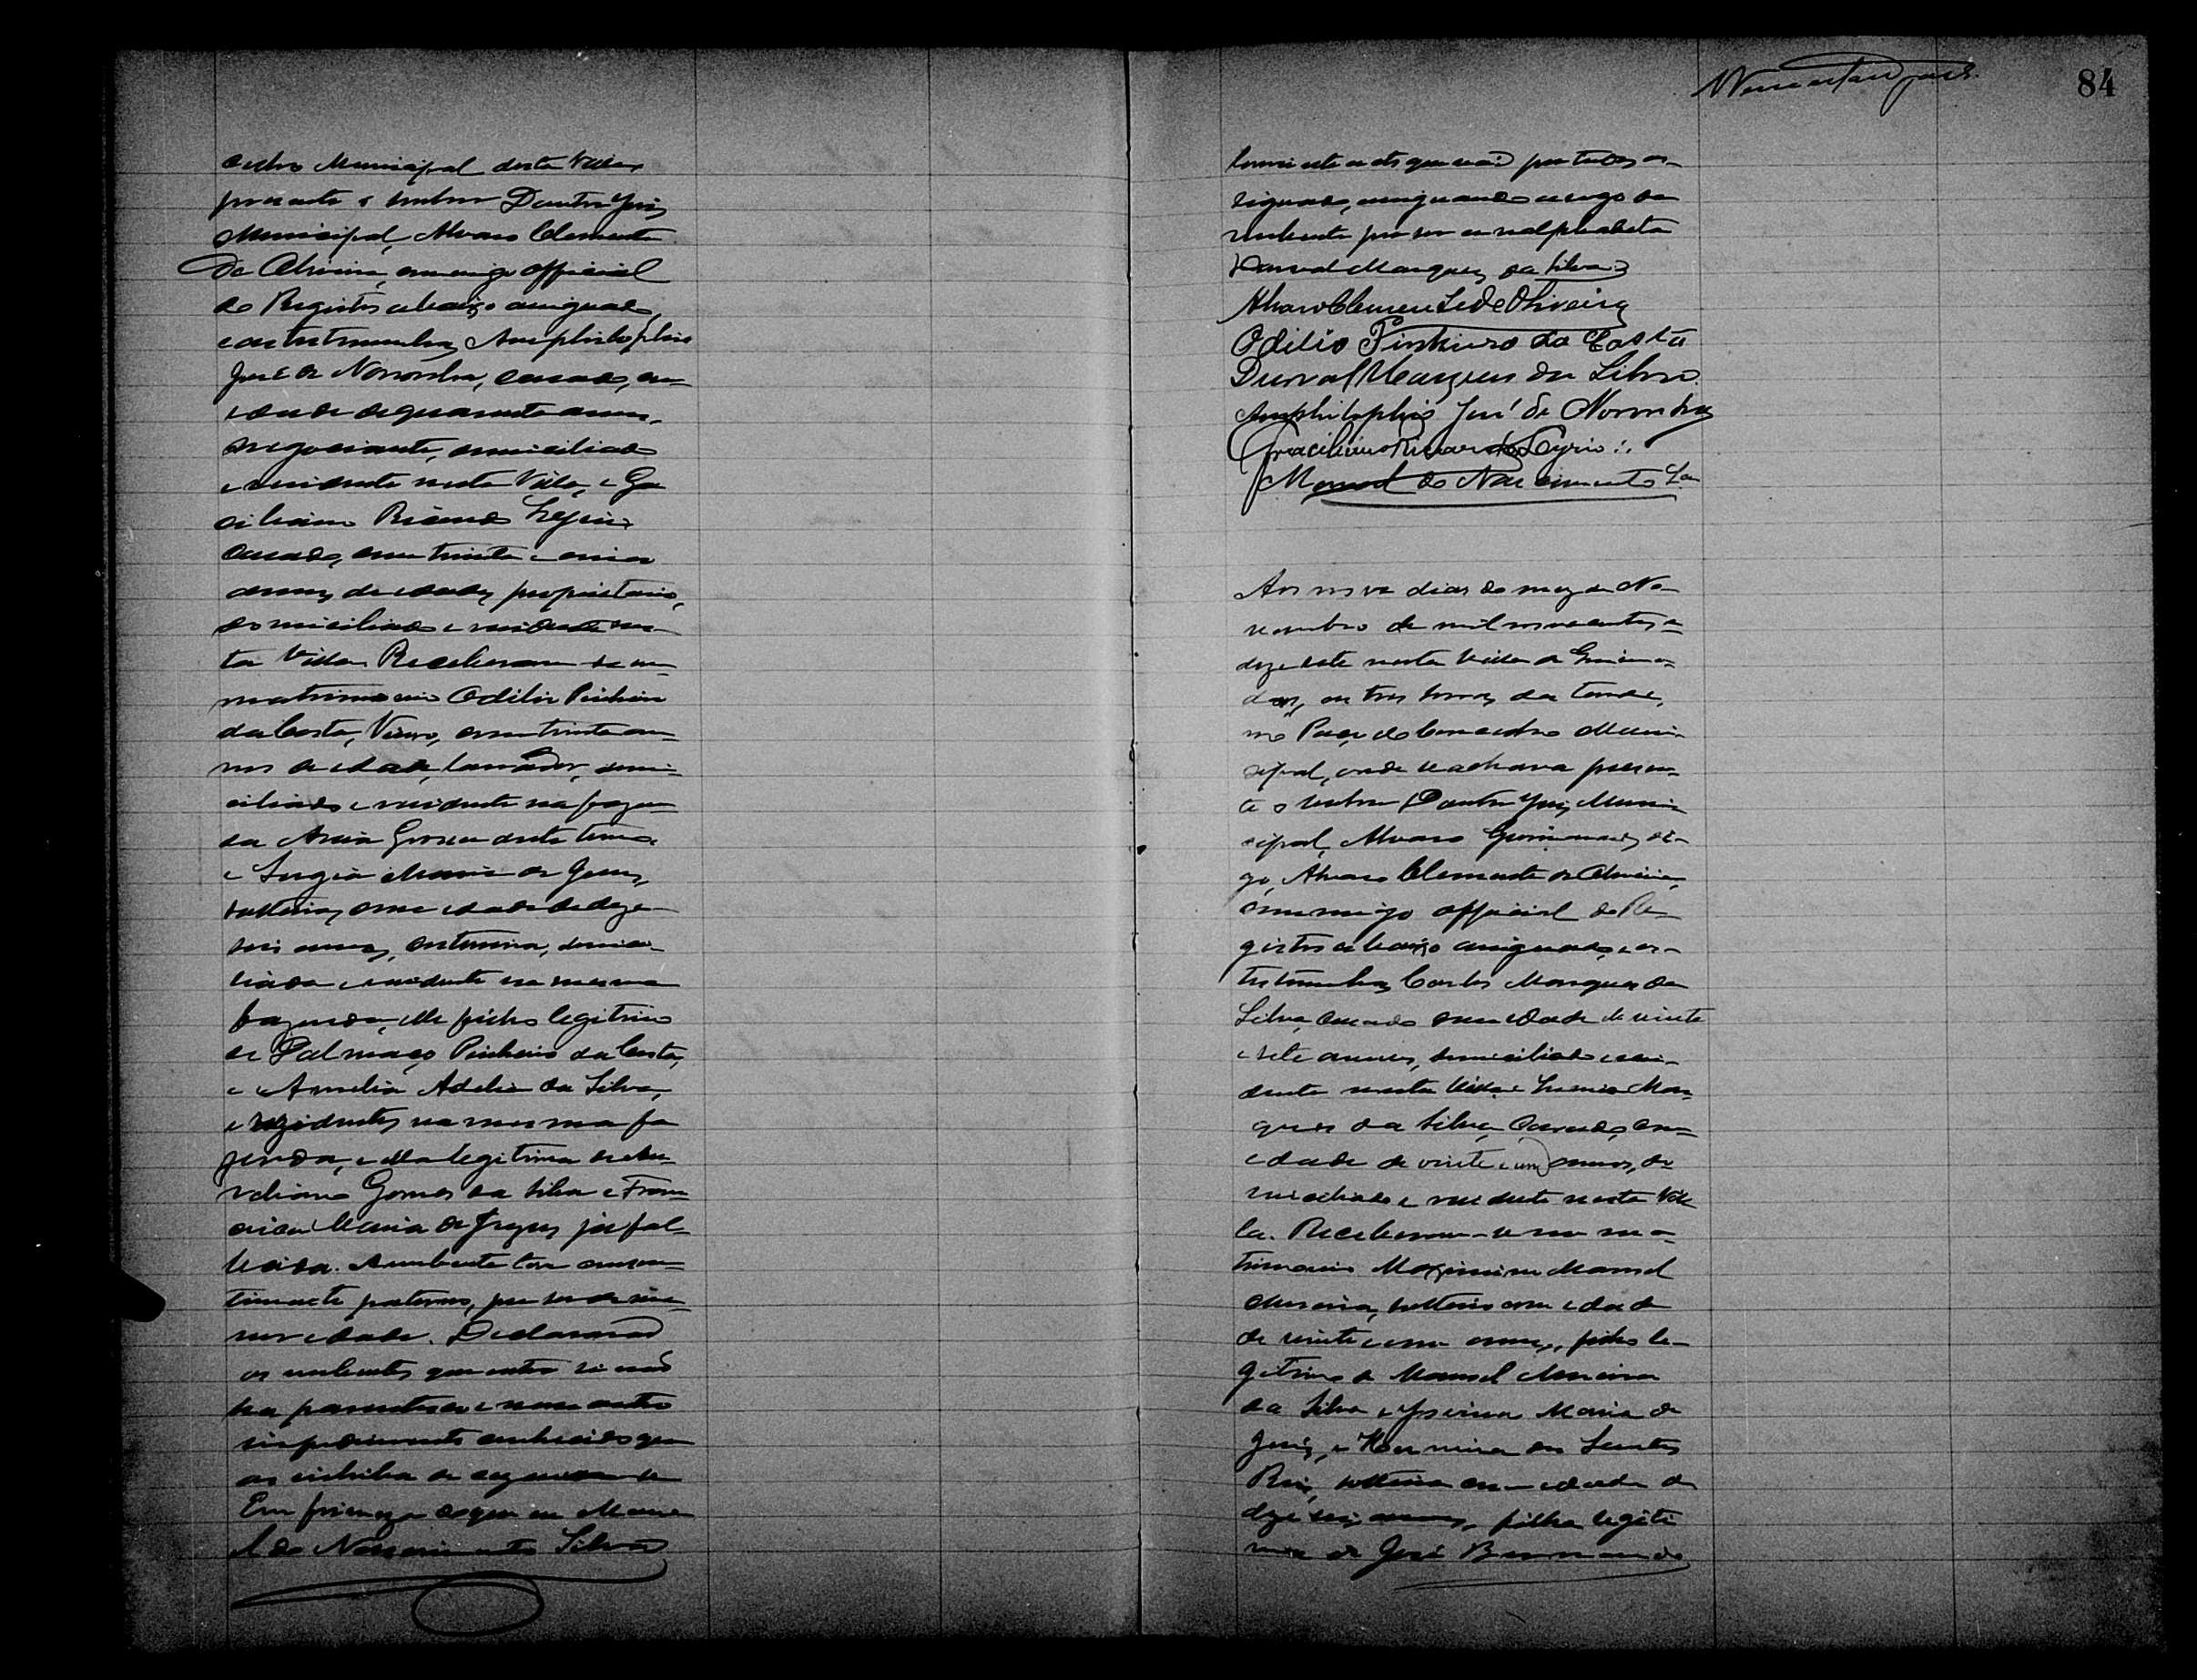 selho Municipal desta Villa,
presente o senhor Doutor Juiz
Municipal, Alvaro Clemente
de Oliveira, commigo official
do Registro abaixo assignado,
e as testemunhas Amphilophio
José de Noronha, casado, com
edade de quarenta annos,
negociante, domiciliado
e residente nesta Villa, e Gra
ciliano Ricardo Leyrio
casado, com trinta e cinco
annos de edade, proprietario,
domiciliado e residente nes
ta Villa. Receberam-se em
matrimonio Odilio Pinheiro
da Costa, Viuvo, com trinta an
nos de edade, lavrador, domi
ciliado e residente na fazen
da Areia Grossa deste termo,
e Maria de Jesus,
solteira, com edade de deze
seis annos, costureira, domici
liada e residente na mesma
fazenda, elle filho legitimo
de Palmaço Pinheiro da Costa,
e Amelia Adelia da Silva,
e rezidentes na mesma fa
zenda, e ella legitima de
Gomes da Silva e Fran
cisca Maria de Jesus já fal
lecida. A nubente tem consen
timento paterno, por ser de me
nor edade. Declararão
os nubentes que entre si não
ha parentesco e nem outro
impedimento conhecido que
os inhiba de cazarem-se
Em firmeza do que eu Mano
el do Nascimento Silva
84
lavrei este acto que vai por todos as
signado, assignando a rogo da
nubente por ser analphabeta
Durval Marques da Silva
Alvaro Clemente de Oliveira
Odilio Pinheiro da Costa
Durval Marques da Silva
Amphilophio José de Noronha
Graciliano Ricardo Leyrio
Manoel do Nascimento Sa
Aos nove dias do mez de No
vembro de mil novecentos e
dezesete nesta Villa de
as tres horas da tarde,
no Paço do Conselho Muni
cipal, onde se achava presen
te o senhor Doutor Juiz Muni
cipal, Alvaro Guimarães, di
go, Alvaro Clemente de Oliveira,
commigo official do Re
gistro abaixo assignado, e as
testemunhas Carlos Marques da
Silva, casado com edade de vinte
e sete annos, domiciliado e resi
dente nesta Villa e Marques
da Silva, casado, com
edade de vinte e um annos, do
miciliado e residente nesta Vil
la. Receberam-se em ma
trimonio Maximino Manoel
Moreira, solteiro com edade
de vinte e um annos, filho le
gitimo de Manoel Moreira
da Silva e Maria de
Jesus, e Hermina dos Santos
Reis, solteira com edade de
dezeseis annos, filha legiti
ma de José Bernardo